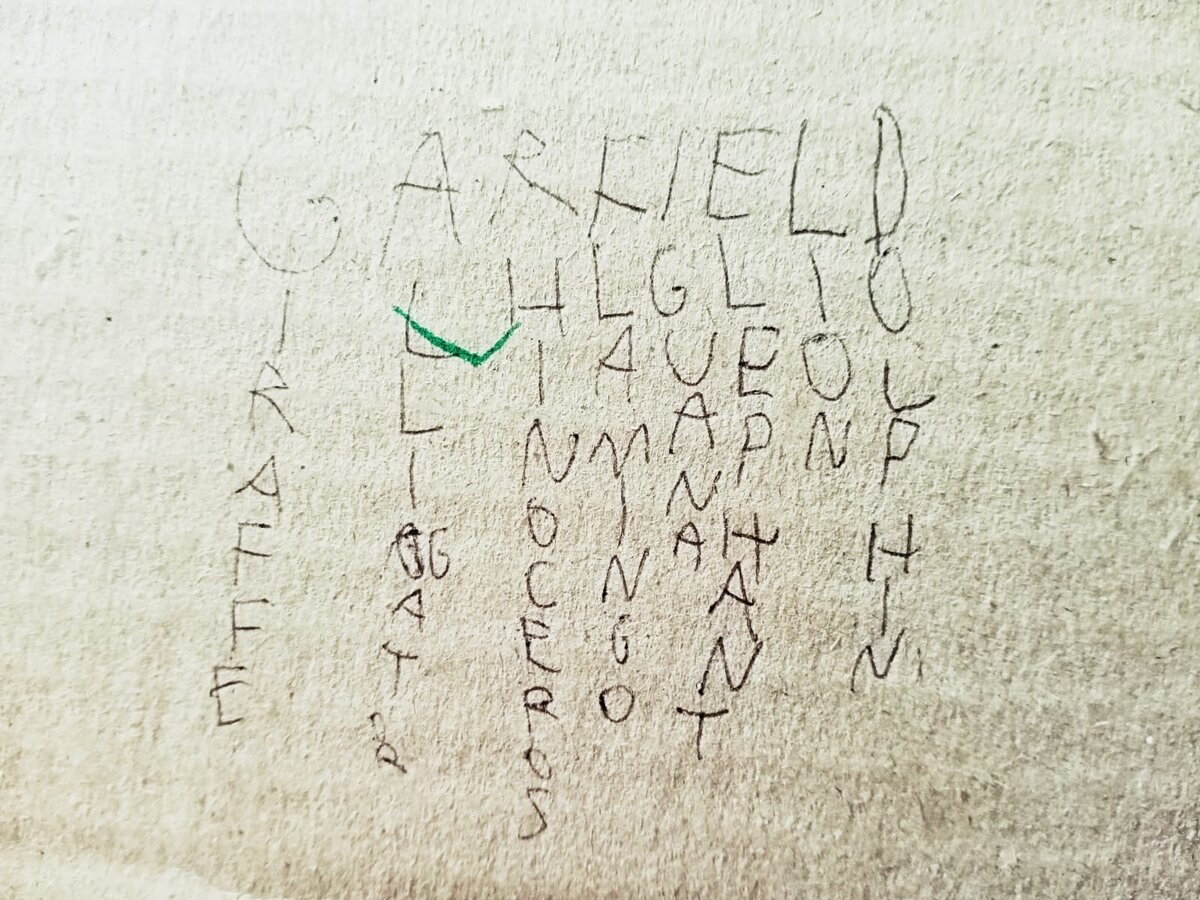 GARFIELD
GIRAFFE
ALLIGATOR
RHINOCEROS
FLAMINGO
IGUANA
ELEPHANT
LION
DOLPHIN